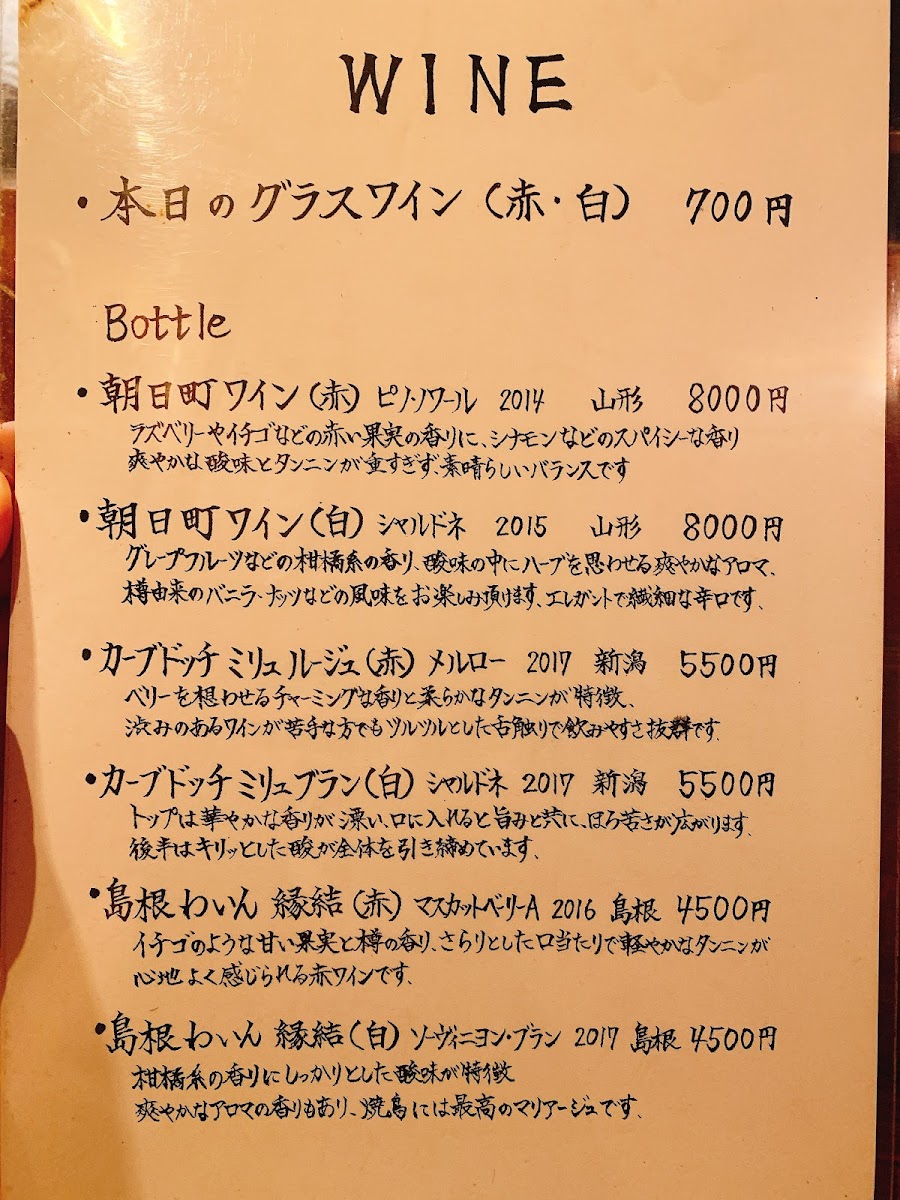 WINE
・本日のグラスワイン（赤・白） 700円
Bottle
・朝日町ワイン（赤）ピノ・ノワール 2014 山形 8000円
ラズベリーやイチゴなどの赤い果実の香りに、シナモンなどのスパイシーな香り
爽やかな酸味とタンニンが重すぎず、素晴らしいバランスです
・朝日町ワイン（白）シャルドネ 2015 山形 8000円
グレープフルーツなどの柑橘系の香り、酸味の中にハーブを思わせる爽やかなアロマ、
樽由来のバニラ・ナッツなどの風味をお楽しみ頂けます、エレガントで繊細な辛口です、
・カーブドッチ ミリュ ルージュ（赤）メルロー 2017 新潟 5500円
ベリーを想わせるチャーミングな香りと柔らかなタンニンが特徴、
渋みのあるワインが苦手な方でもツルツルとした舌触りで飲みやすさ抜群です、
・カーブドッチ ミリュ ブラン（白）シャルドネ 2017 新潟 5500円
トップは華やかな香りが漂い、口に入れると旨みと共に、ほろ苦さが広がります、
後半はキリッとした酸が全体を引き締めています、
・島根わいん 縁結（赤）マスカットベリーA 2016 島根 4500円
イチゴのような甘い果実と樽の香り、さらりとした口当たりで軽やかなタンニンが
心地よく感じられる赤ワインです、
・島根わいん 縁結（白）ソーヴィニヨン・ブラン 2017 島根 4500円
柑橘系の香りにしっかりとした酸味が特徴
爽やかなアロマの香りもあり、焼鳥には最高のマリアージュです、